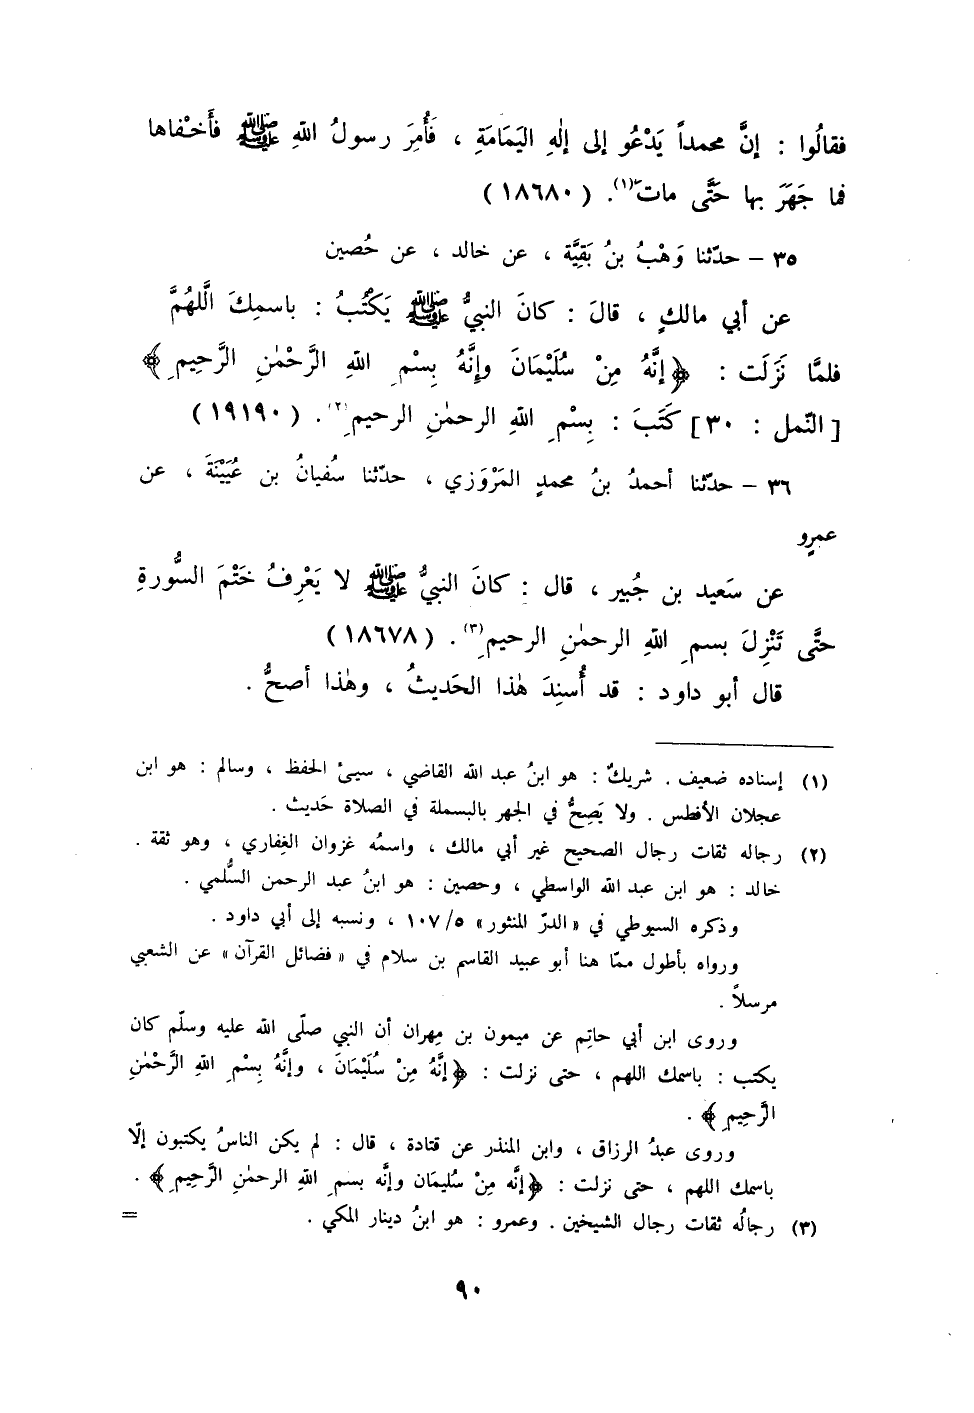 فقالُوا : إنَّ محمداً يَدْعُو إلى إلٰهِ اليَمَامَةِ ، فَأُمِرَ رسولُ اللهِ ﷺ فأَخْفاها
فما جَهَرَ بها حَتَّى ماتَ(١). (١٨٦٨٠)
٣٥ – حدّثنا وَهْبُ بنُ بَقِيَّة ، عن خالد ، عن حُصين
عن أبي مالكٍ ، قالَ : كانَ النبيُّ ﷺ يَكْتُبُ : باسمِكَ الَّلهُمَّ
فلمَّا نَزَلَت : ﴿إنَّهُ مِنْ سُلَيْمَانَ وإنَّهُ بِسْمِ اللهِ الرَّحْمٰنِ الرَّحِيمِ﴾
[النّمل : ٣٠] كَتَبَ : بِسْمِ اللهِ الرحمٰنِ الرحيمِ(٢). (١٩١٩٠)
٣٦ – حدّثنا أحمدُ بنُ محمدٍ المَرْوَزي ، حدّثنا سُفيانُ بن عُيَيْنَةَ ، عن
عمرٍو
عن سَعيد بن جُبير ، قال : كانَ النبيُّ ﷺ لا يَعْرِفُ خَتْمَ السُّورةِ
حتَّى تَنْزِلَ بسمِ اللهِ الرحمٰنِ الرحيمِ(٣). (١٨٦٧٨)
قال أبو داود : قد أُسنِدَ هٰذا الحَديثُ ، وهٰذا أصحُّ .
(١) إسناده ضعيف . شريكٌ : هو ابنُ عبد الله القاضي ، سيئ الحفظ ، وسالم : هو ابن
عجلان الأفطس . ولا يَصِحُّ في الجهر بالبسملة في الصلاة حَديث .
(٢) رجاله ثقات رجال الصحيح غير أبي مالك ، واسمُه غزوان الغِفاري ، وهو ثقة .
خالد : هو ابن عبد الله الواسطي ، وحصين : هو ابنُ عبد الرحمن السُّلمي .
وذكره السيوطي في «الدرّ المنثور» ١٠٧/٥ ، ونسبه إلى أبي داود .
ورواه بأطول ممّا هنا أبو عبيد القاسم بن سلام في «فضائل القرآن» عن الشعبي
مرسلاً .
وروى ابن أبي حاتِم عن ميمون بن مِهران أن النبي صلّى الله عليه وسلّم كان
يكتب : باسمك اللهم ، حتى نزلت : ﴿إنَّهُ مِنْ سُلَيْمَانَ ، وإنَّهُ بِسْمِ اللهِ الرَّحْمٰنِ
الرَّحِيمِ﴾ .
وروى عبدُ الرزاق ، وابن المنذر عن قتادة ، قال : لم يكن الناسُ يكتبون إلّا
باسمك اللهم ، حتى نزلت : ﴿إنَّه مِنْ سُليمَان وإنَّه بسمِ اللهِ الرحمٰنِ الرَّحِيمِ﴾ .
(٣) رجالُه ثقات رجال الشيخين . وعمرو : هو ابنُ دينار المكي . =
٩٠